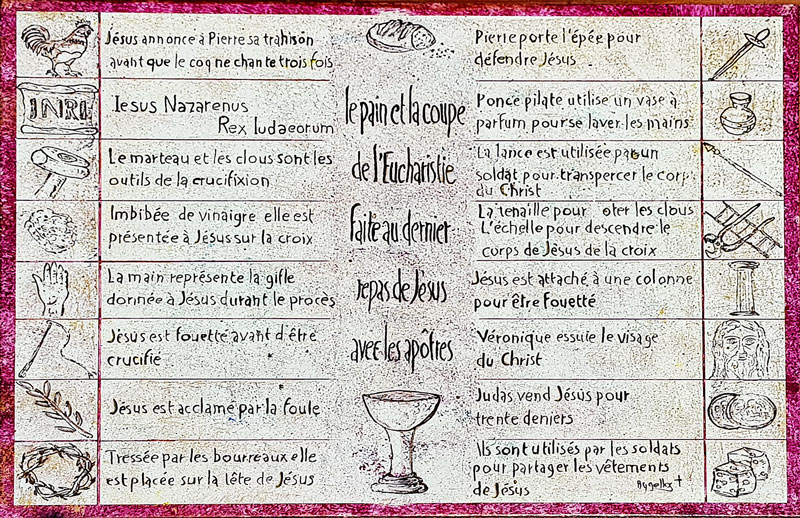 Jésus annonce à Pierre sa trahison
avant que le coq ne chante trois fois
INRI
Iesus Nazarenus
Rex Iudaeorum
Le marteau et les clous sont les
outils de la crucifixion
Imbibée de vinaigre elle est
présentée à Jésus sur la croix
La main représente la gifle
donnée à Jésus durant le procès
Jésus est fouetté avant d'être
crucifié
Jésus est acclamé par la foule
Tressée par les bourreaux elle
est placée sur la tête de Jésus
le pain et la coupe
de l'Eucharistie
faite au dernier
repas de Jésus
avec les apôtres
Pierre porte l'épée pour
défendre Jésus
Ponce pilate utilise un vase à
parfum pour se laver les mains
La lance est utilisée par un
soldat pour transpercer le corps
du Christ
La tenaille pour oter les clous
L'échelle pour descendre le
corps de Jésus de la croix
Jésus est attaché à une colonne
pour être fouetté
Véronique essuie le visage
du Christ
Judas vend Jésus pour
trente deniers
Ils sont utilisés par les soldats
pour partager les vêtements
de Jésus